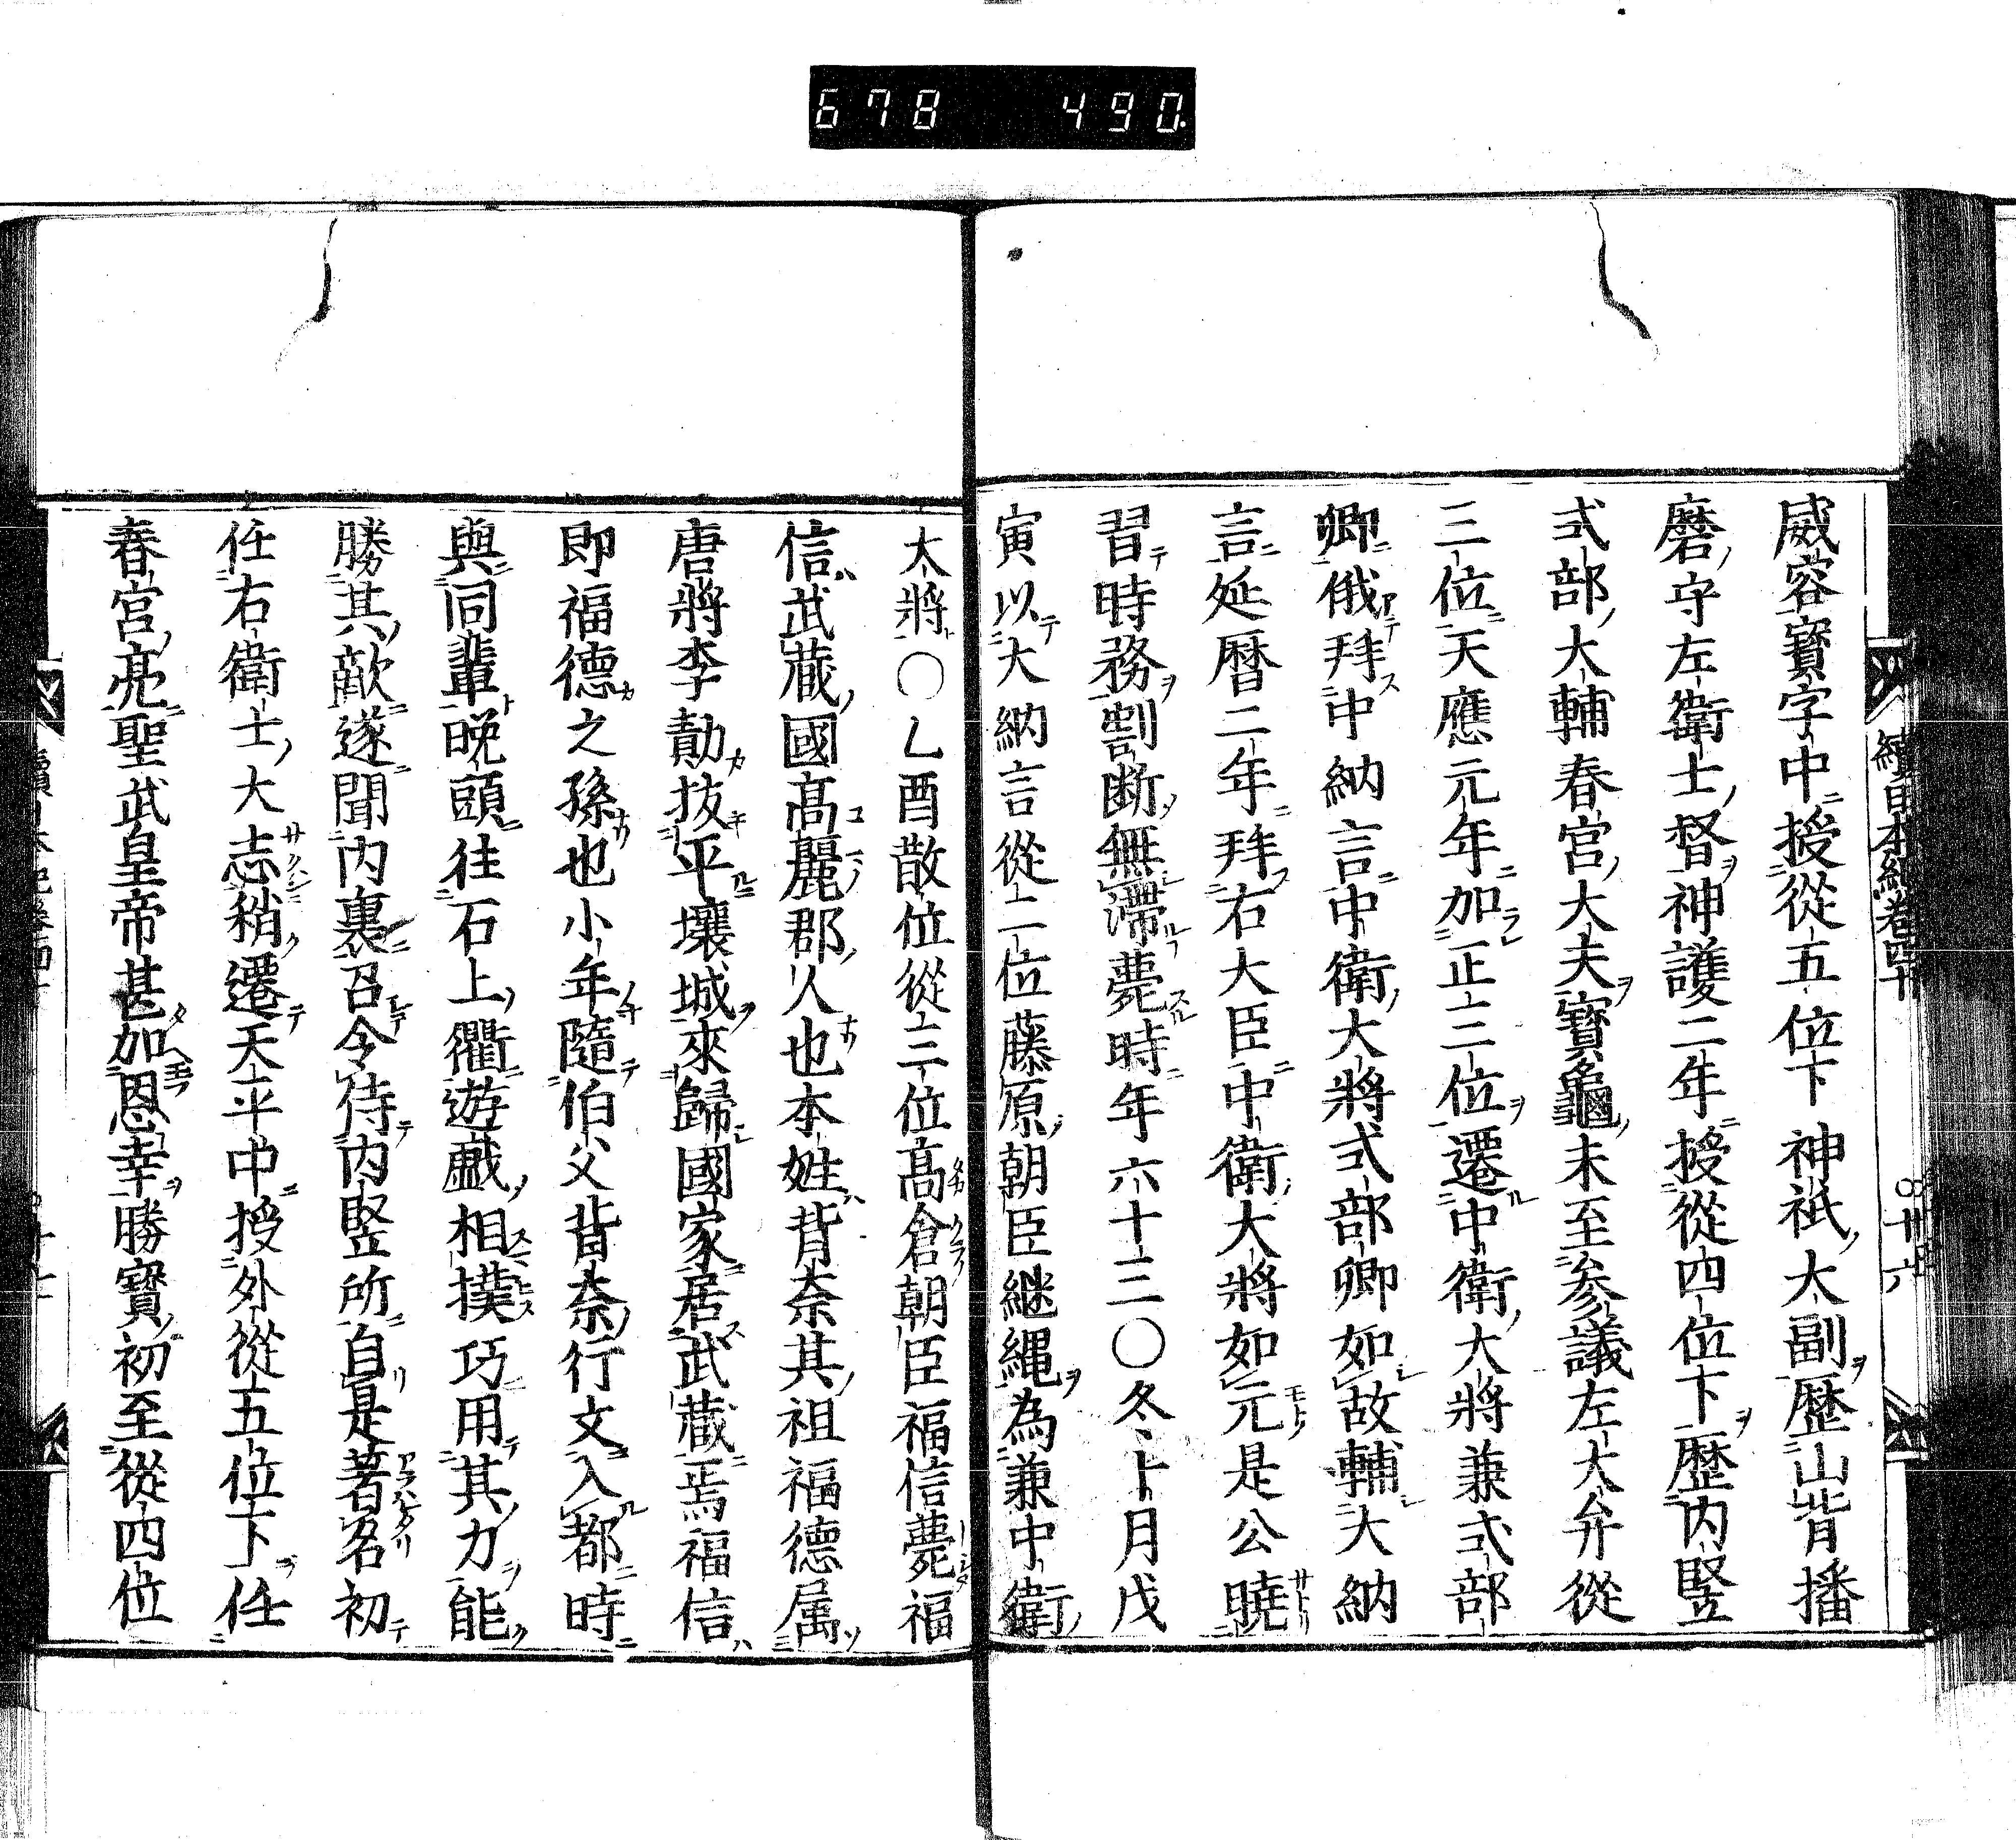 678 490
續日本紀卷四十
威容寶字中授從五位下神祇大副歷山背播
磨守左衛士督神護二年授從四位下歷内竪
式部大輔春宮大夫寶龜末至參議左大弁從
三位天應元年加正三位遷中衛大將兼式部
卿俄拜中納言中衛大將式部卿如故轉大納
言延曆二年拜右大臣中衛大將如元是公曉
習時務割断無滯薨時年六十三〇冬十月戊
寅以大納言從二位藤原朝臣継繩為兼中衛
大將〇乙酉散位從三位髙倉朝臣福信薨福
信武藏國髙麗郡人也本姓背奈其祖福德属
唐將李勣拔平壤城來歸國家居武藏焉福信
即福德之孫也小年隨伯父背奈行文入都時
與同輩晚頭往石上衢遊戲相撲巧用其力能
勝其敵遂聞内裏召令侍内竪所自是著名初
任右衛士大志稍遷天平中授外從五位下任
春宮亮聖武皇帝甚加恩幸勝寶初至從四位